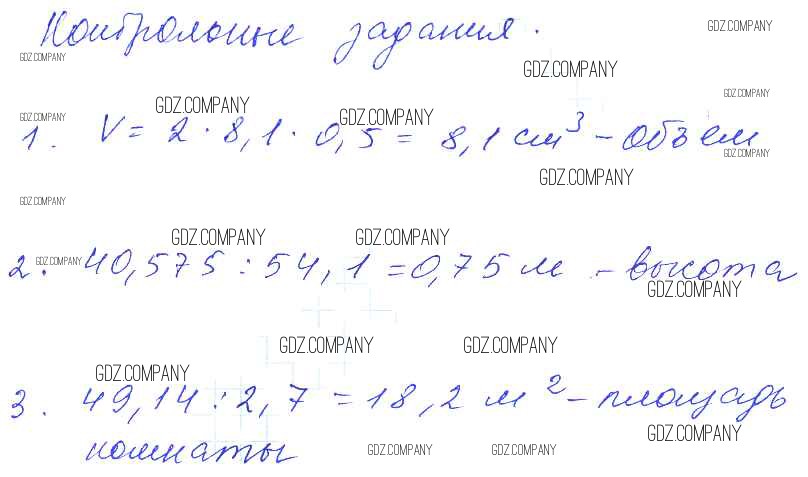 Контрольные задания.
GDZ.COMPANY
GDZ.COMPANY
GDZ.COMPANY
GDZ.COMPANY
GDZ.COMPANY
GDZ.COMPANY
GDZ.COMPANY
1. V = 2 · 8,1 · 0,5 = 8,1 см³ - объем
GDZ.COMPANY
GDZ.COMPANY
GDZ.COMPANY
GDZ.COMPANY
GDZ.COMPANY
GDZ.COMPANY
2. 40,575 : 54,1 = 0,75 м - высота
GDZ.COMPANY
GDZ.COMPANY
GDZ.COMPANY
GDZ.COMPANY
3. 49,14 : 2,7 = 18,2 м² - площадь
GDZ.COMPANY
комнаты
GDZ.COMPANY
GDZ.COMPANY